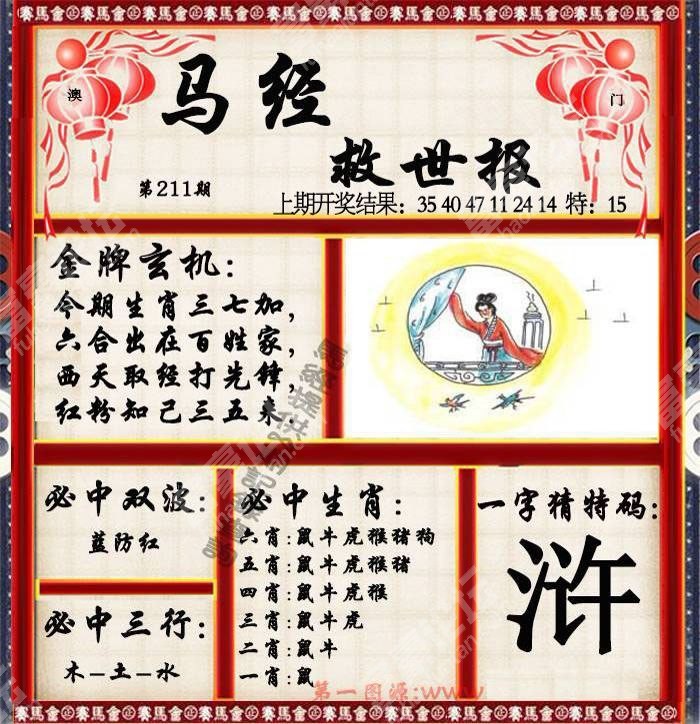 澳
门
马经
救世报
第211期
上期开奖结果：35 40 47 11 24 14 特：15
金牌玄机：
今期生肖三七加，
六合出在百姓家，
西天取经打先锋，
红粉知己三五来。
必中双波：
蓝防红
必中三行：
木–土–水
必中生肖：
六肖:鼠牛虎猴猪狗
五肖:鼠牛虎猴猪
四肖:鼠牛虎猴
三肖:鼠牛虎
二肖:鼠牛
一肖:鼠
一字猜特码：
浒
第一图源:www